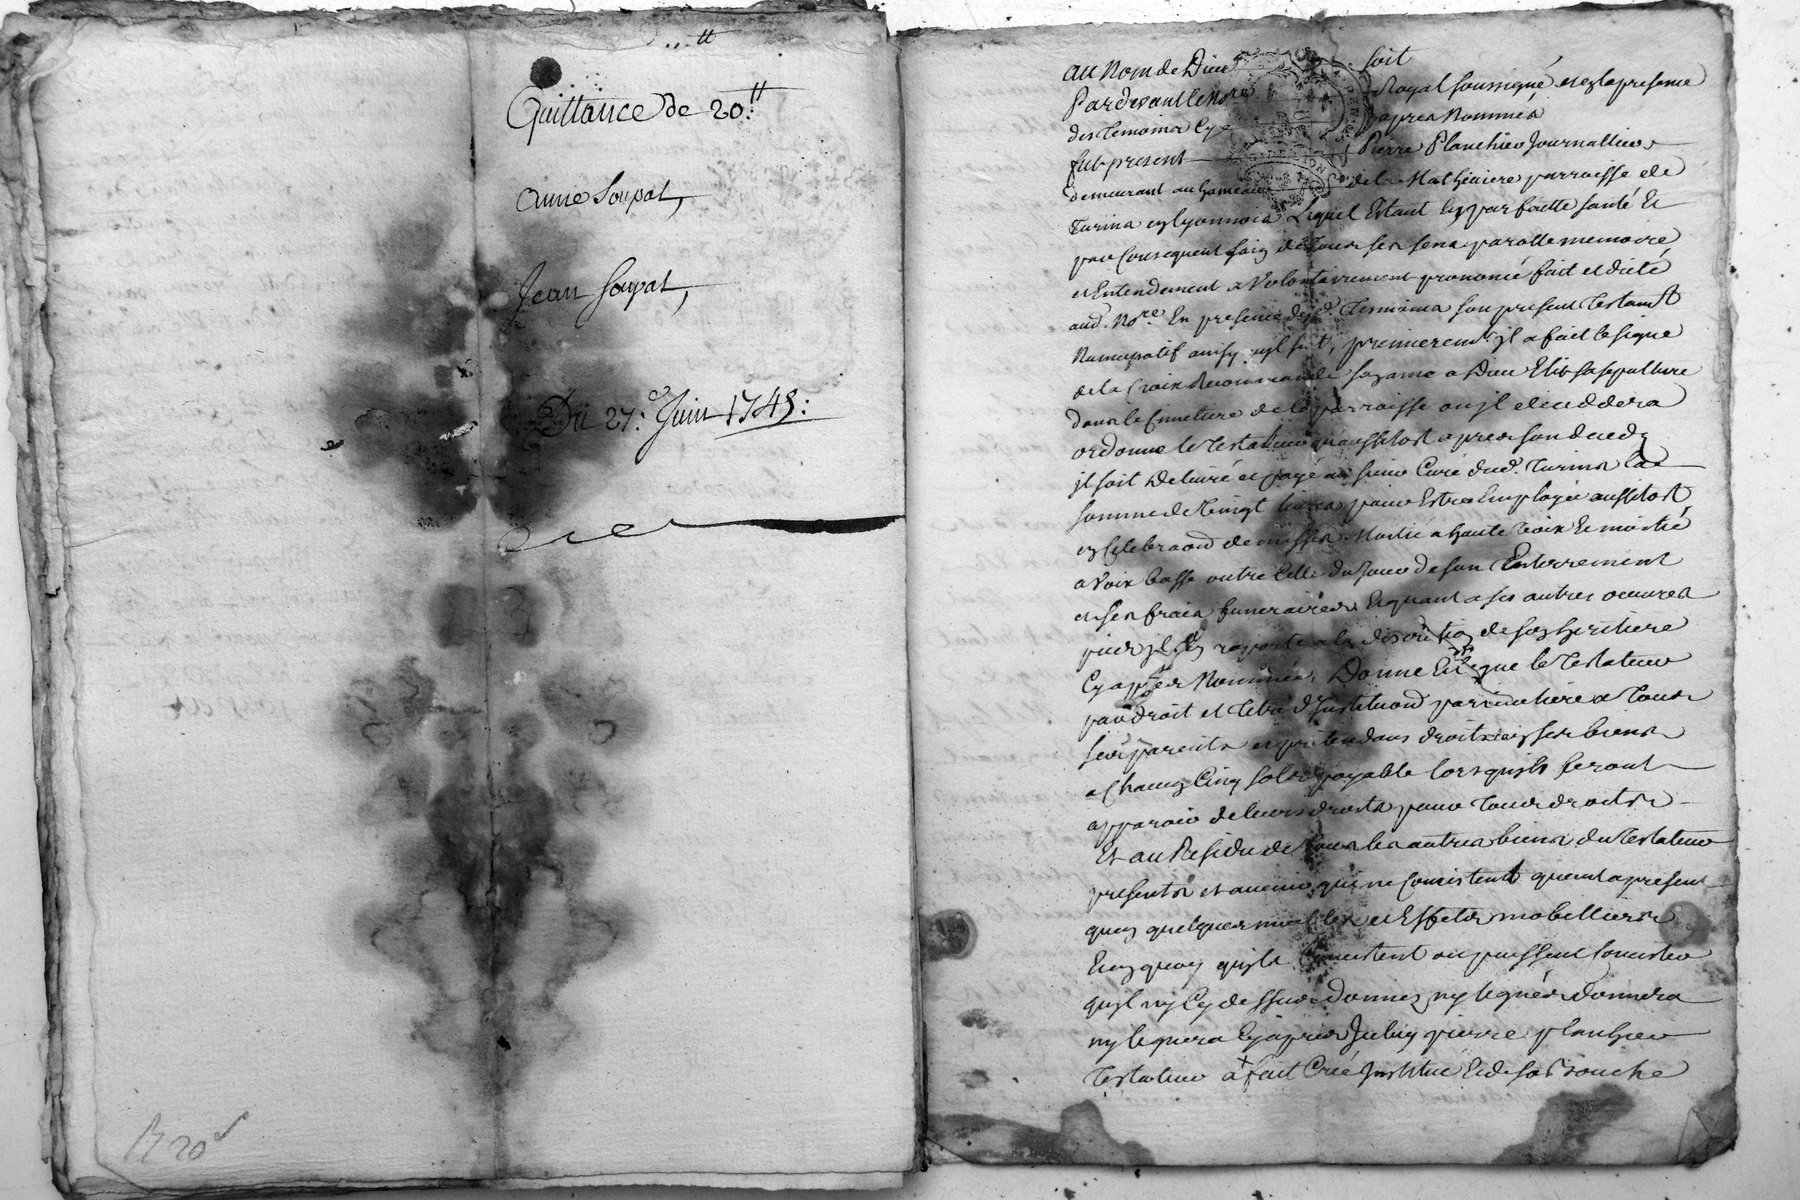 Quittance de 20:tt
Anne Soupat,
Jean Soupat,
Du 27:e Juin 1745:
R 20
au Nom de Dieu soit
Pardevant le No.re Royal soussigné et en la presence
des Temoins Cy apres Nommés
fut present Pierre Planchier Journallier
demeurant au hameau de la Mathiniere parroisse de
Turins en lyonnois Lequel Estant En parfaitte santé Et
par Consequent sain de Tous ses sens parolle memoire
et Entendement a Volontairement prononcé fait et dicté
aud. No.re En presence desd. Temoins son present Testam.t
Nuncupatif ainsy quil suit, premierem.t il a fait le signe
de la Croix Recommandé son ame a Dieu Elit sa sepulture
dans le Cimetiere de la parroisse ou jl deceddera
ordonne le Testateur qu'aussitost apres son deced
jl soit Delivré et payé au sieur Curé dud. Turins la
somme de Vingt livres pour Estre Employée aussitost
en Celebraon de messes Moitié a haute Voix Et moitié
a Voix basse outre Celle du Jour de son Enterrement
et ses frais funeraires, Et quant a ses autres oeuvres
pies jl s'en raporte a la discretion de son heritiere
Cy apres Nommée, Donne Et legue le Testateur
par droit et Titre d'Instituon particuliere a Tous
ses parents et pretendans droits en ses biens
a Chacun Cinq sols payable lorsqu'ils feront
apparoir de leurs droits pour Tous droits
Et au Residu de Tous les autres biens du Testateur
presents et avenir qui ne Consistent quant a present
qu'en quelques meubles et Effets mobilliers
En quoy qu'ils Consistent ou puissent Consister
qu'il n'y Cy dessus Donnez ny legués donnera
ny leguera Cy apres Jceluy pierre planchier
Testateur a fait Créé Jnstitué Et de sa Bouche